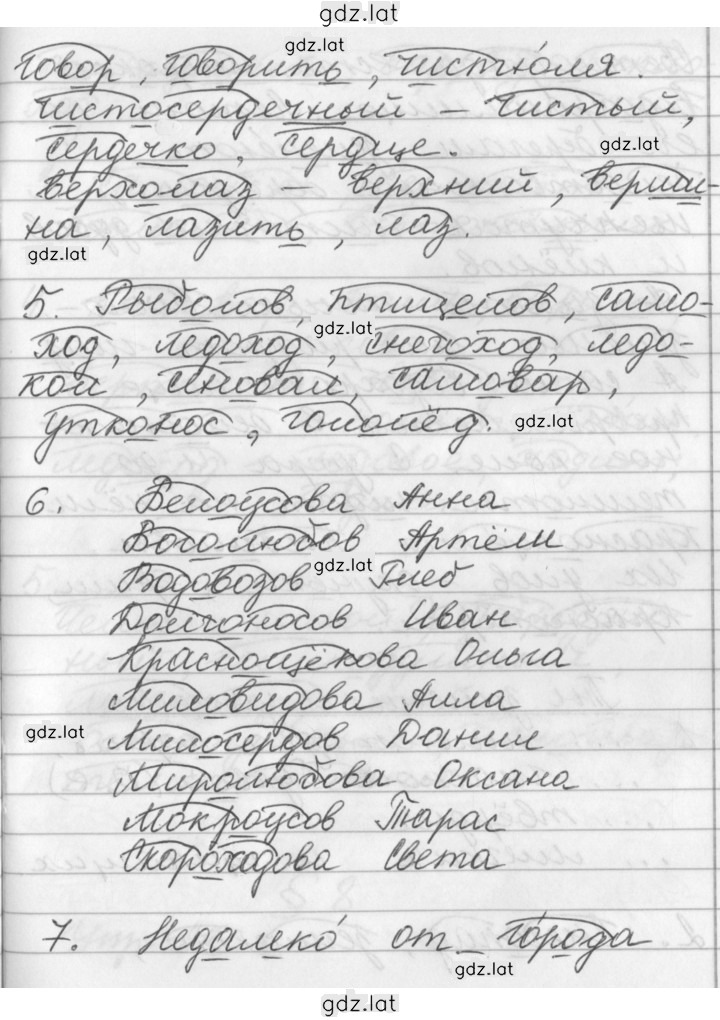 gdz.lat
gdz.lat
говор, говорить, чистю́ля.
чистосердечный – чистый,
gdz.lat
сердечко, сердце.
верхолаз – верхний, верши-
на, лазить, лаз.
gdz.lat
5. Рыболов, птицелов, само-
gdz.lat
ход, ледоход, снегоход, ледо-
кол, сеновал, самовар,
утконос, гололёд.
gdz.lat
6. Белоусова Анна
Боголюбов Артём
gdz.lat
Водовозов Глеб
Долгоносов Иван
Краснощёкова Ольга
Миловидова Алла
gdz.lat
Милосердов Данил
Миролюбова Оксана
Мокроусов Тарас
Скороходова Света
7. Недалеко́ от го́рода
gdz.lat
gdz.lat